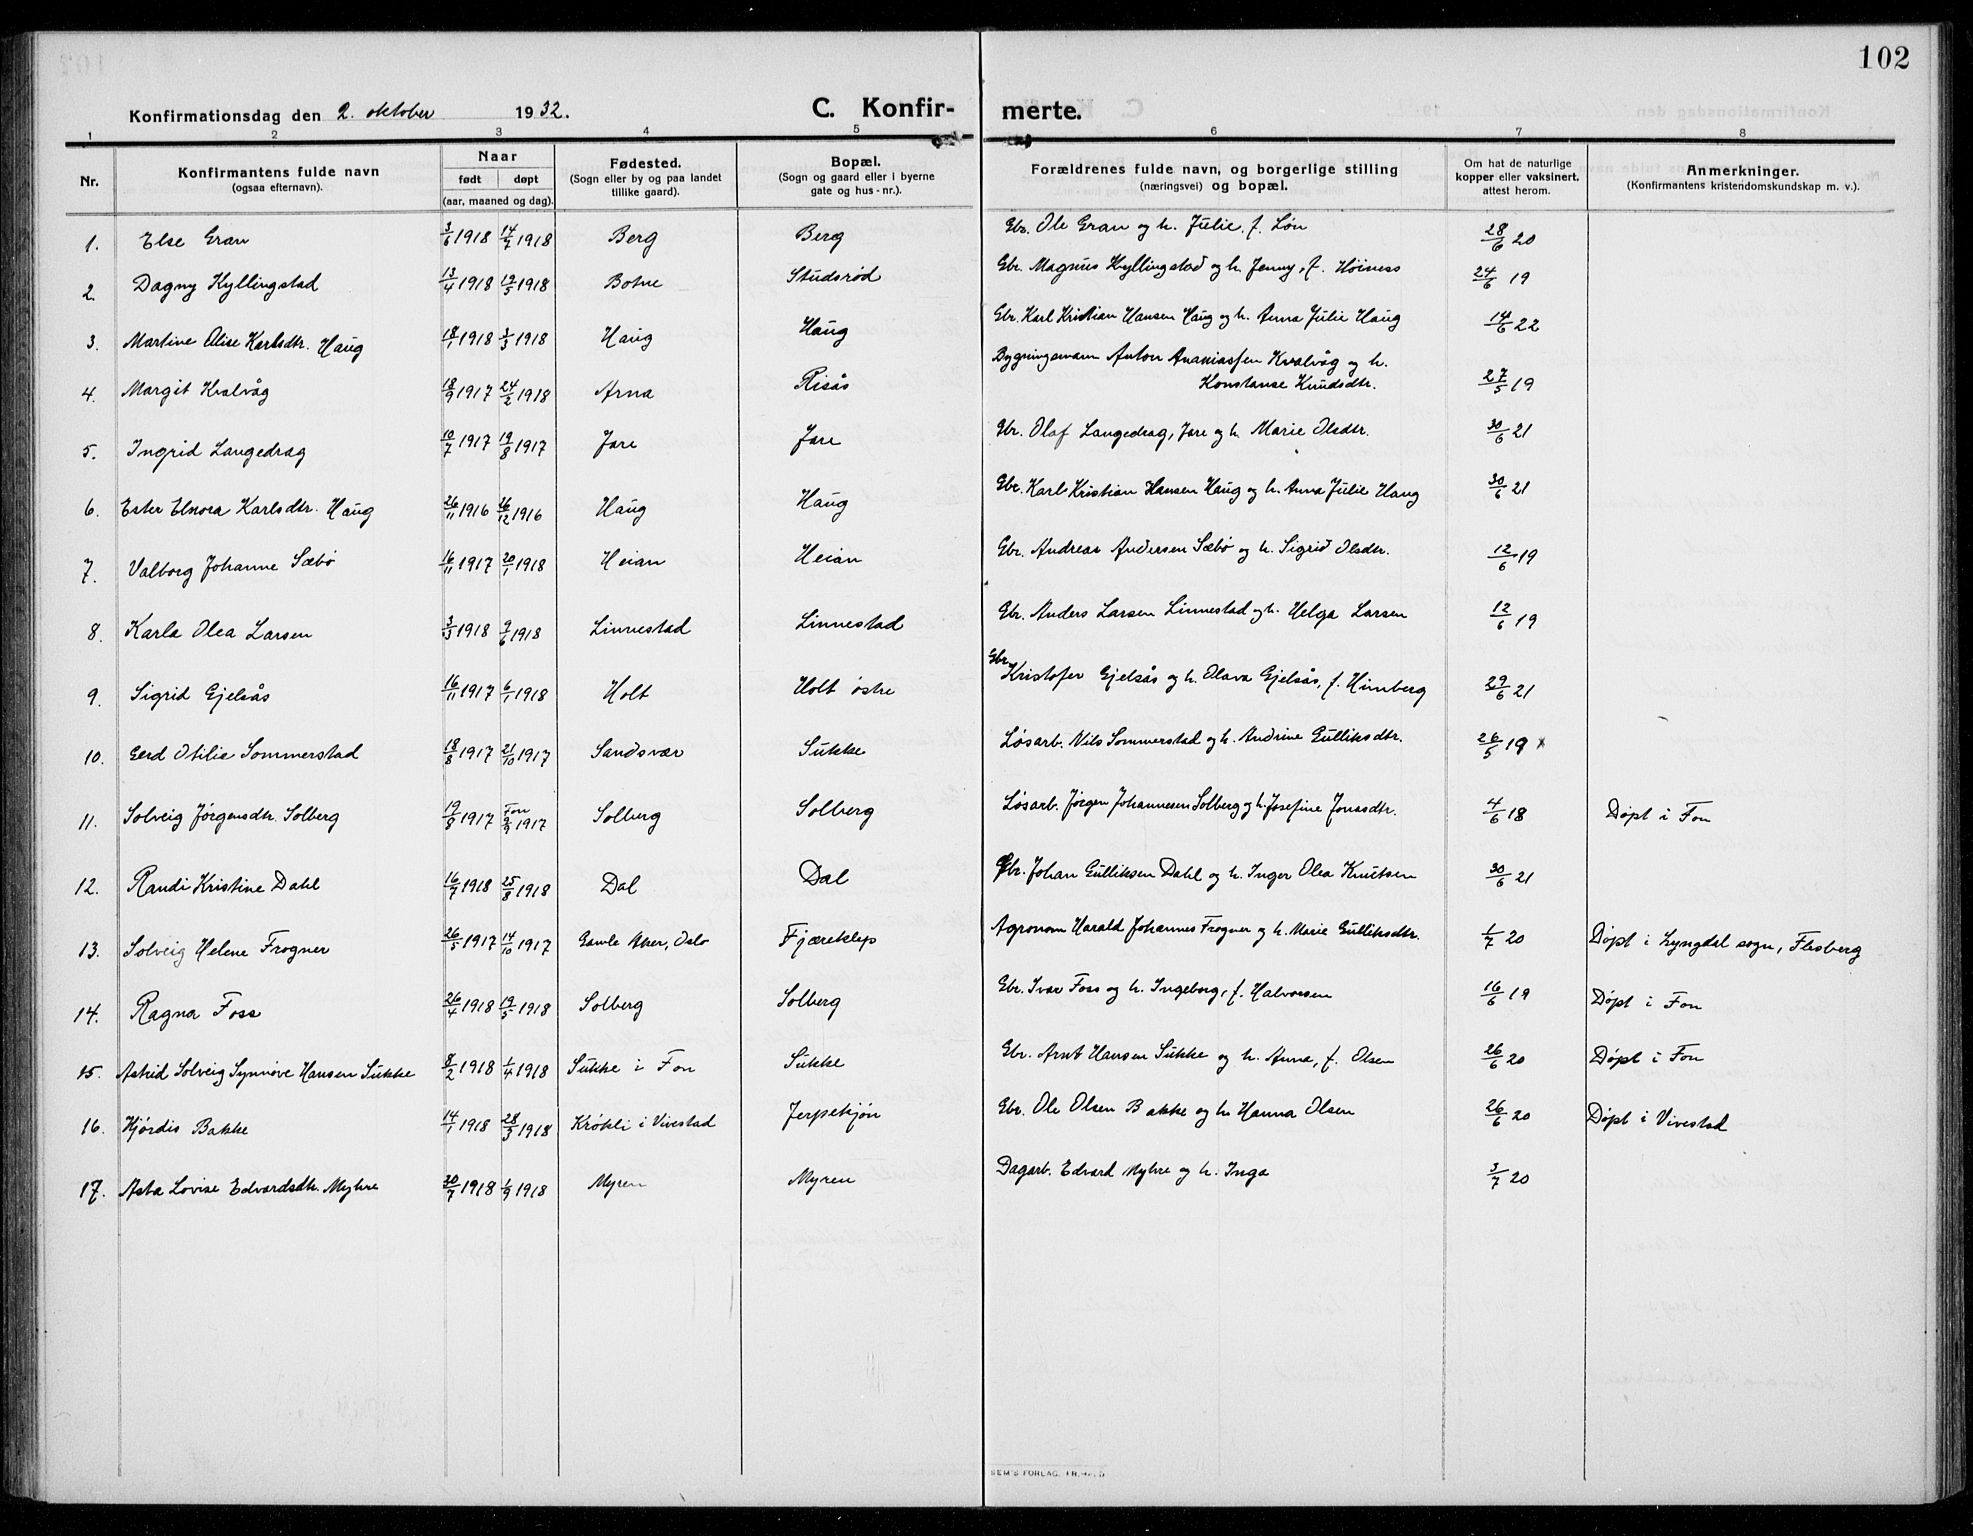 102
Konfirmationsdag den 2. oktober 1932.
C. Konfirmerte.
1 2 3 4 5 6 7 8
Nr. | Konfirmantens fulde navn (ogsaa efternavn). | Naar født døpt (aar, maaned og dag). | Fødested. (Sogn eller by og paa landet tillike gaard). | Bopæl. (Sogn og gaard eller i byerne gate og hus-nr.). | Forældrenes fulde navn, og borgerlige stilling (næringsvei) og bopæl. | Om hat de naturlige kopper eller vaksinert, attest herom. | Anmerkninger. (Konfirmantens kristendomskundskap m. v.).
1. Else Gran 3/6 1918 14/7 1918 Berg Berg Gbr. Ole Gran og h. Julie, f. Løn 28/6 20
2. Dagny Kyllingstad 13/4 1918 12/5 1918 Botne Studsrød Gbr. Magnus Kyllingstad og h. Jenny, f. Høiness 24/6 19
3. Martine Alise Karlsdtr. Haug 18/1 1918 3/3 1918 Haug Haug Gbr. Karl Kristian Hansen Haug og h. Anna Julie Haug 14/6 22
4. Margit Kvalvåg 18/9 1917 24/2 1918 Arna Risås Bygningsmann Anton Ananiassen Kvalvåg og h. Konstanse Knudsdtr. 27/5 19
5. Ingrid Langedrag 10/7 1917 19/8 1917 Jare Jare Gbr. Olaf Langedrag, Jare og h. Marie Olsdtr. 30/6 21
6. Ester Elnora Karlsdtr. Haug 26/11 1916 26/12 1916 Haug Haug Gbr. Karl Kristian Hansen Haug og h. Anna Julie Haug 30/6 21
7. Valborg Johanne Sæbø 16/11 1917 20/1 1918 Heian Heian Gbr. Andreas Andersen Sæbø og h. Sigrid Olsdtr. 12/6 19
8. Karla Olea Larsen 3/3 1918 9/6 1918 Linnestad Linnestad Gbr. Anders Larsen Linnestad og h. Helga Larsen 12/6 19
9. Sigrid Gjelsås 16/11 1917 6/1 1918 Holt Holt østre Gbr. Kristofer Gjelsås og h. Olava Gjelsås, f. Himberg 29/6 21
10. Gerd Otilie Sommerstad 18/8 1917 21/10 1917 Sandsvær Sukke Løsarb. Nils Sommerstad og h. Andrine Gulliksdtr. 26/5 19 x
11. Solveig Jørgensdtr. Solberg 19/8 1917 Fon 2/9 1917 Solberg Solberg Løsarb. Jørgen Johannesen Solberg og h. Josefine Jonasdtr. 4/6 18 Døpt i Fon
12. Randi Kristine Dahl 16/7 1918 25/8 1918 Dal Dal Gbr. Johan Gulliksen Dahl og h. Inger Olea Knutsen 30/6 21
13. Solveig Helene Frogner 26/5 1917 14/10 1917 Gamle Aker, Oslo Fjæreklep Agronom Harald Johannes Frogner og h. Marie Gulliksdtr. 1/7 20 Døpt i Lyngdal sogn, Flesberg
14. Ragna Foss 26/4 1918 19/5 1918 Solberg Solberg Gbr. Ivar Foss og h. Ingeborg, f. Halvorsen 16/6 19 Døpt i Fon
15. Astrid Solveig Synnøve Hansen Sukke 8/2 1918 1/4 1918 Sukke i Fon Sukke Gbr. Arnt Hansen Sukke og h. Anna, f. Olsen 26/6 20 Døpt i Fon
16. Hjørdis Bakke 14/1 1918 28/3 1918 Krøkli i Vivestad Jerpekjøn Gbr. Ole Olsen Bakke og h. Hanna Olsen 26/6 20 Døpt i Vivestad
17. Asta Lovise Edvardsdtr. Myhre 20/7 1918 1/9 1918 Myren Myren Dagarb. Edvard Myhre og h. Inga 3/7 20
SEM'S FORLAG,